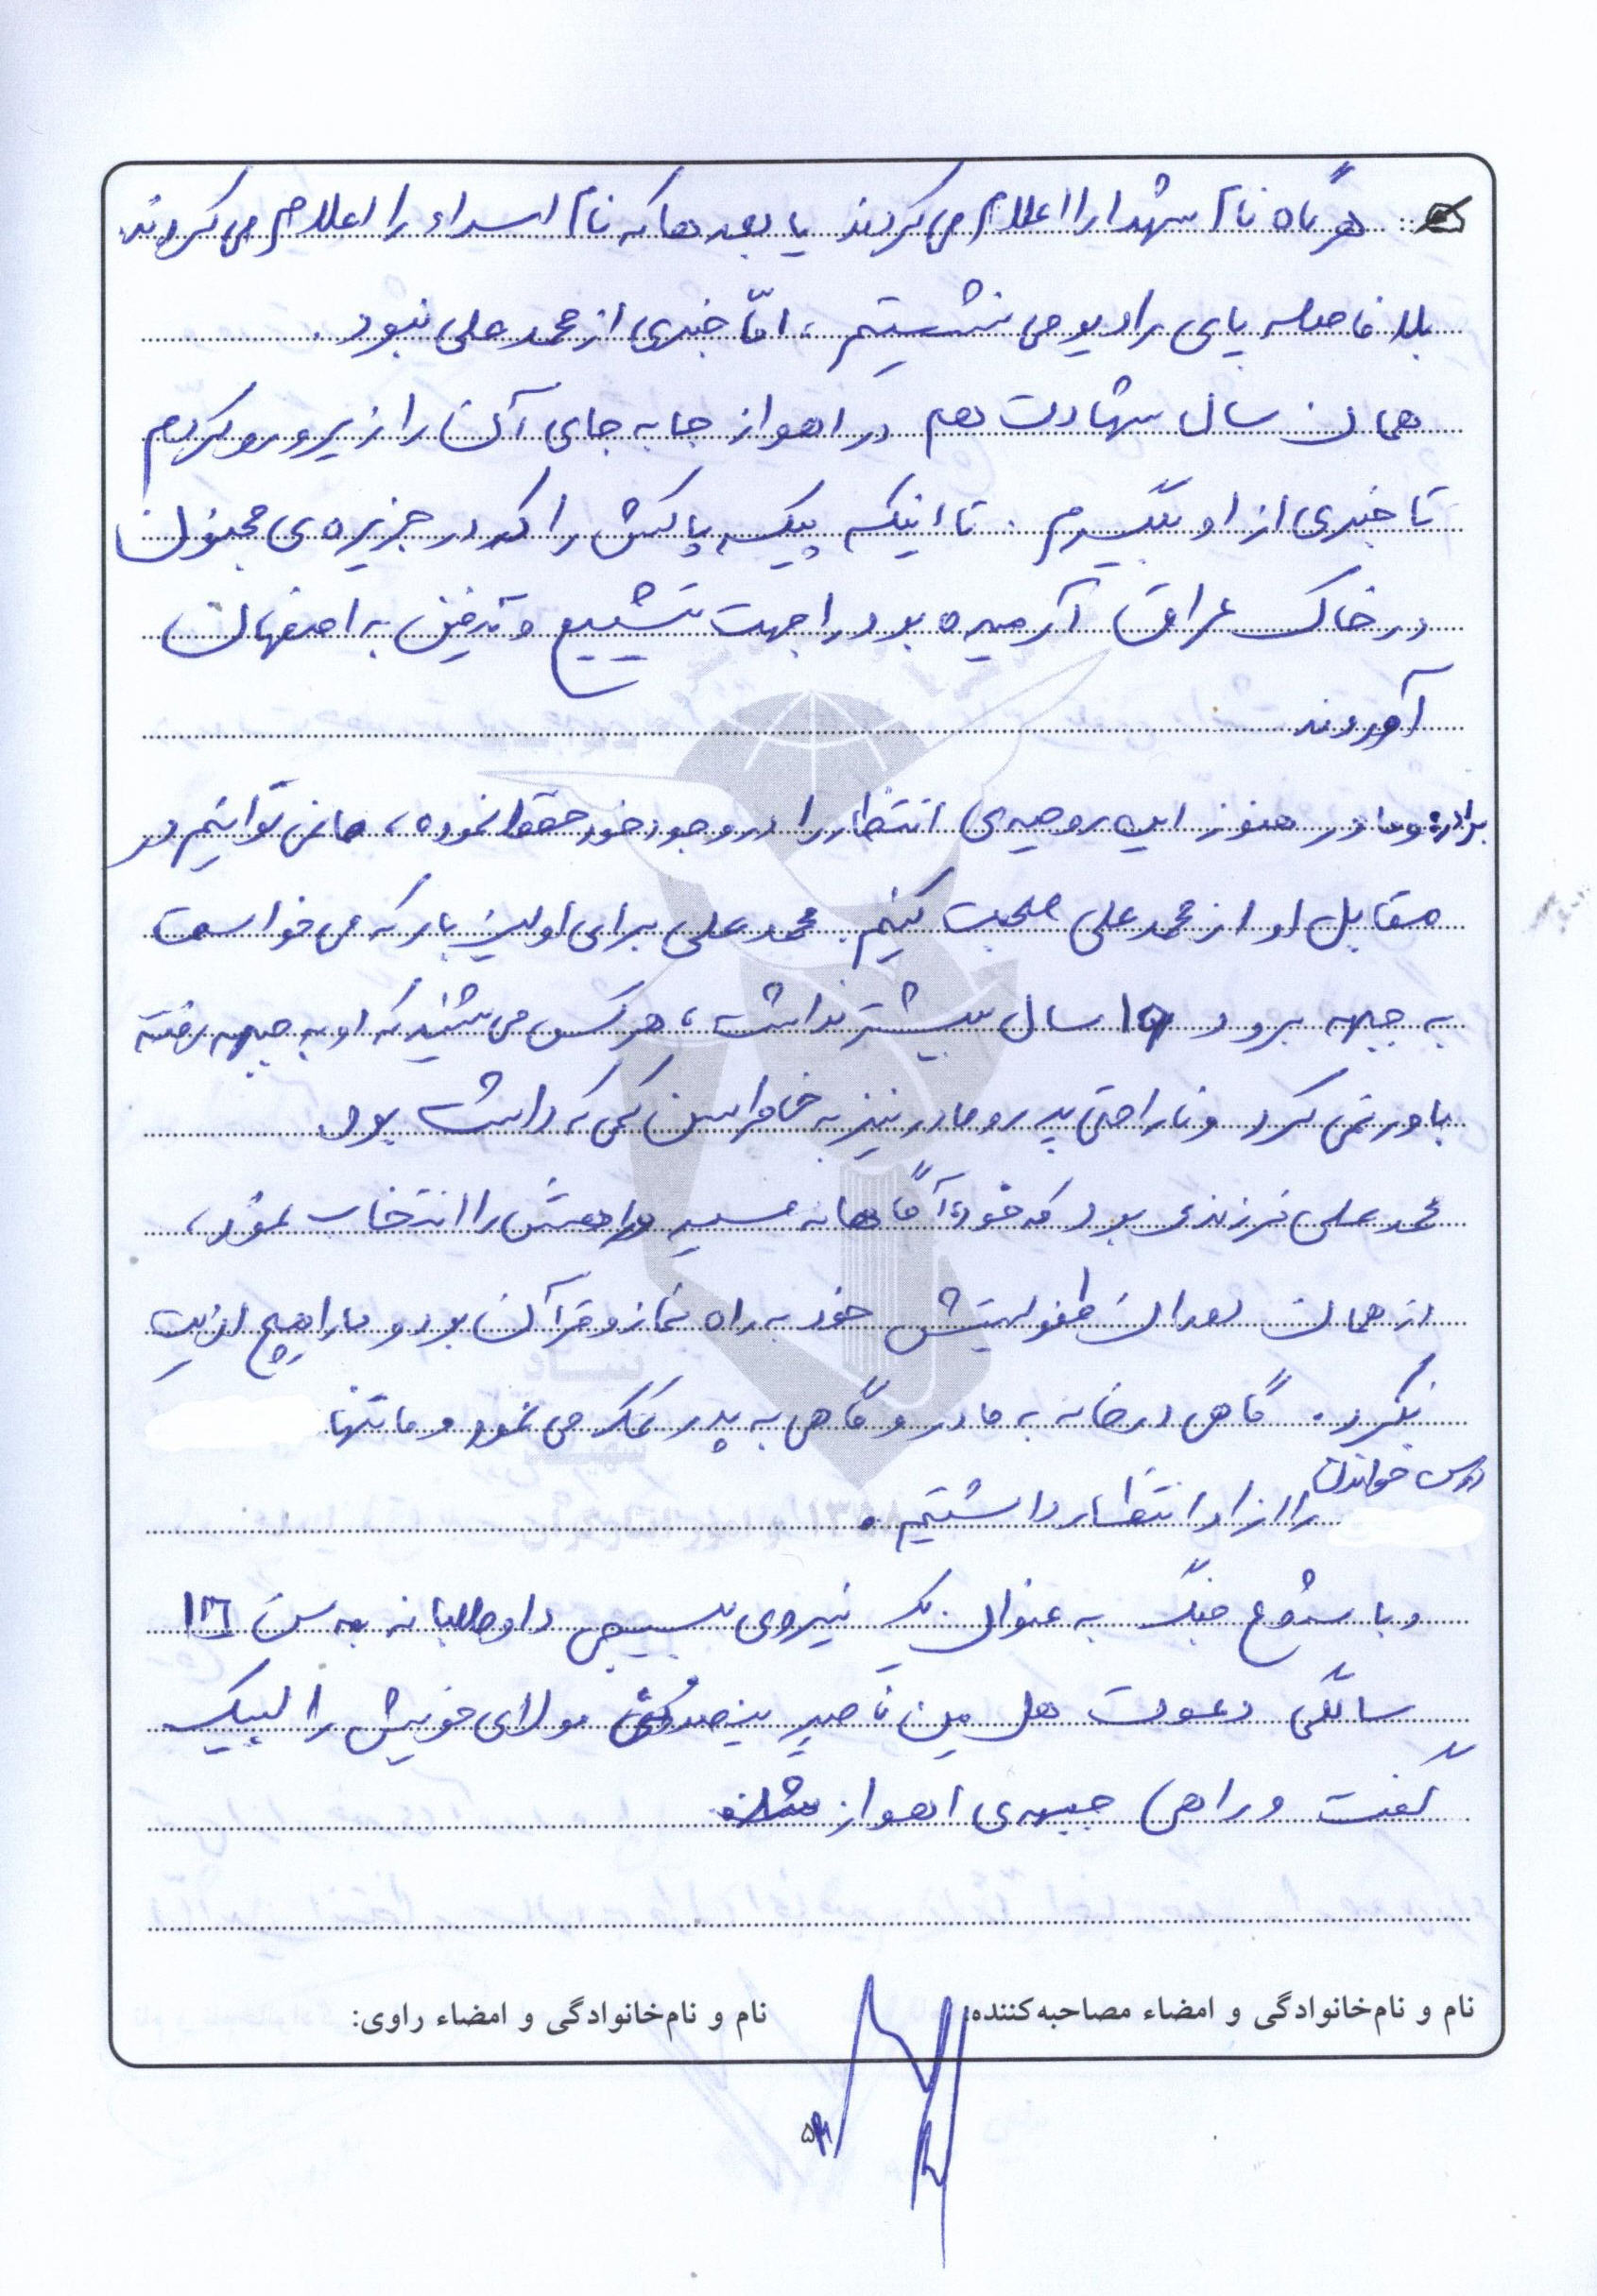 هرگاه نام شهدا را اعلام می‌کردند یا بعدها که نام اسراء را اعلام می‌کردند
بلافاصله پای رادیو می‌نشستیم، امّا خبری از محمدعلی نبود.
همان سال شهادت هم در اهواز جا به جای آن را زیر و رو کردم
تا خبری از او بگیرم. تا اینکه پیکر پاکش را که در جزیره‌ی مجنون
در خاک عراق آرمیده بود را جهت تشییع و تدفین به اصفهان
آوردند
برادر: و مادر هنوز این روحیه‌ی انتظار را در وجود خود حفظ نموده، ما نمی‌توانیم در
مقابل او از محمدعلی صحبت کنیم. محمدعلی برای اولین بار که می‌خواست
به جبهه برود ۱۵ سال بیشتر نداشت، هر کس می‌شنید که او به جبهه رفته
باور نمی‌کرد و ناراحتی پدر و مادر نیز به خاطر سن کمی که داشت بود
محمدعلی فرزندی بود که خود آگاهانه مسیر راهش را انتخاب نمود،
از همان دوران طفولیتش خود به راه نماز و قرآن بود و ما را هیچ اذیت
نکرد. گاهی در خانه به مادر و گاهی به پدر کمک می‌نمود و ما تنها
درس خواندن را از او انتظار داشتیم.
و با شروع جنگ به عنوان یک نیروی بسیجی داوطلبانه به سن
سالگی دعوت هل من ناصر ینصرنی مولای خویش را لبیک
گفت و راهی جبهه‌ی اهواز شد
نام و نام‌خانوادگی و امضاء مصاحبه‌کننده:
نام و نام‌خانوادگی و امضاء راوی:
بنیاد
شهید
۱۳۵۸